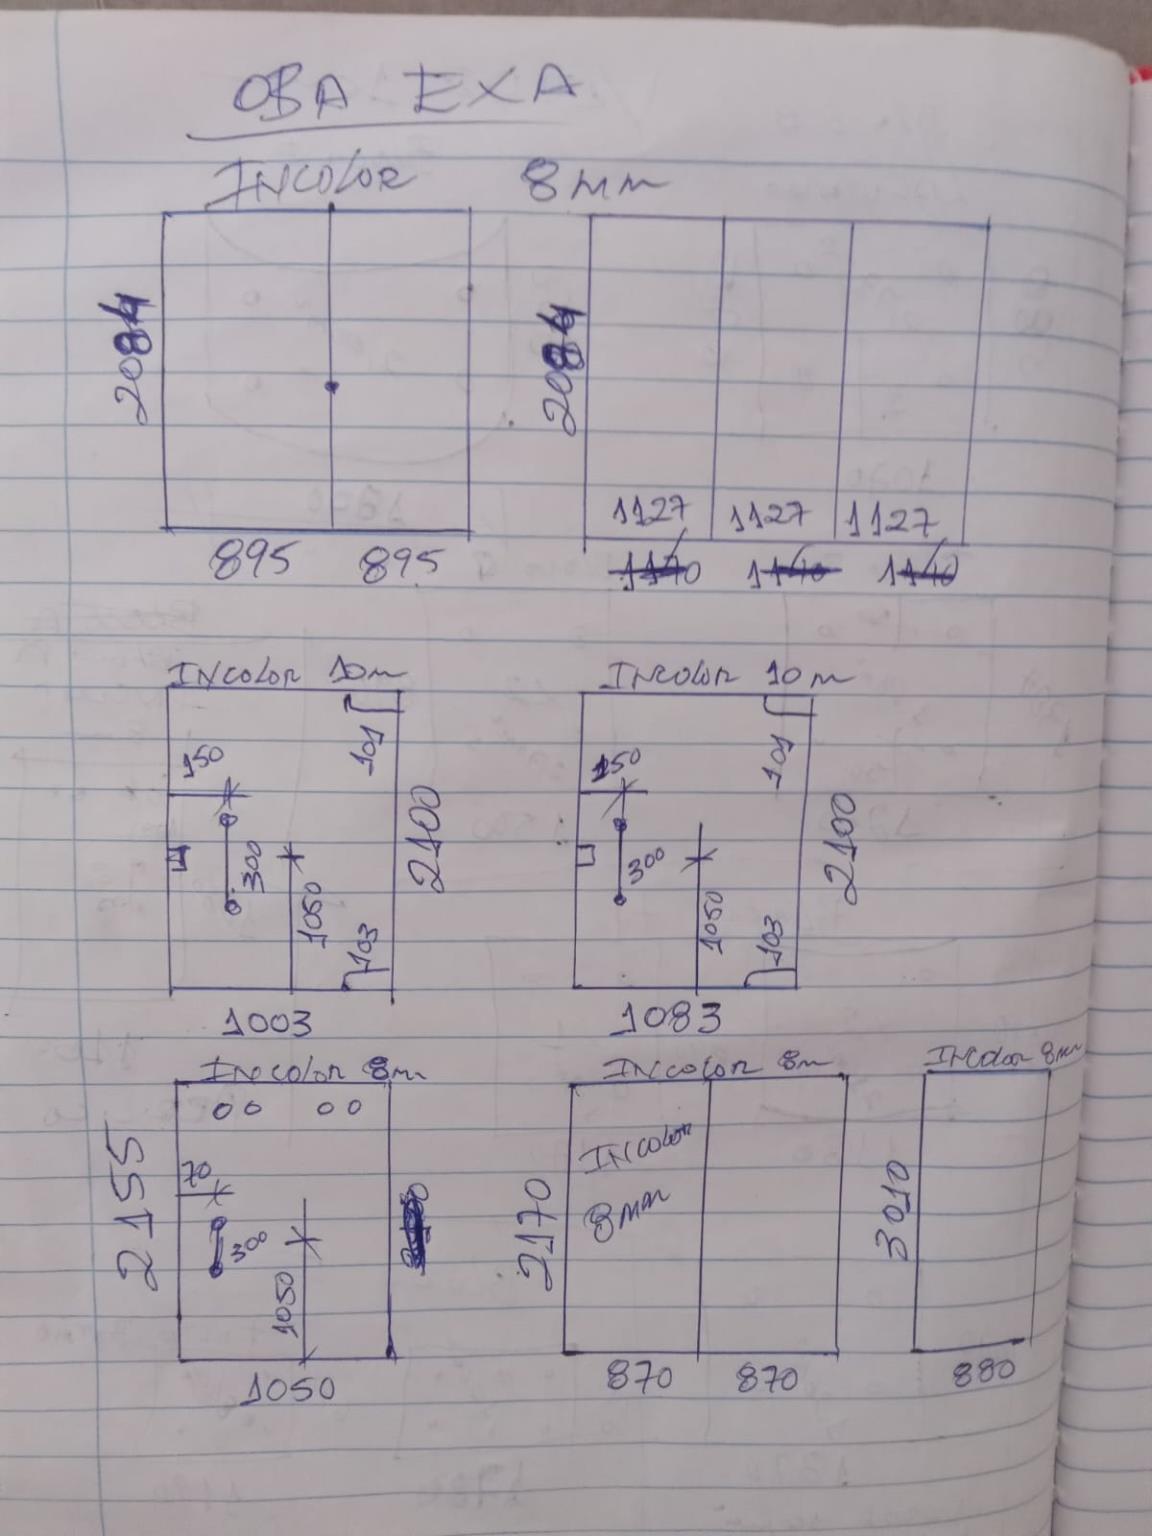 OBA EXA
INCOLOR 8mm
2084
2084
1127 1127 1127
895 895
1140 1140 1140
INCOLOR 10m
INCOLOR 10m
150
101
2100
300
1050
103
1003
150
101
2100
300
1050
103
1083
INCOLOR 8m
2155
70
300
1050
1050
INCOLOR 8m
INCOLOR
8mm
2170
870 870
INCOLOR 8mm
3010
880